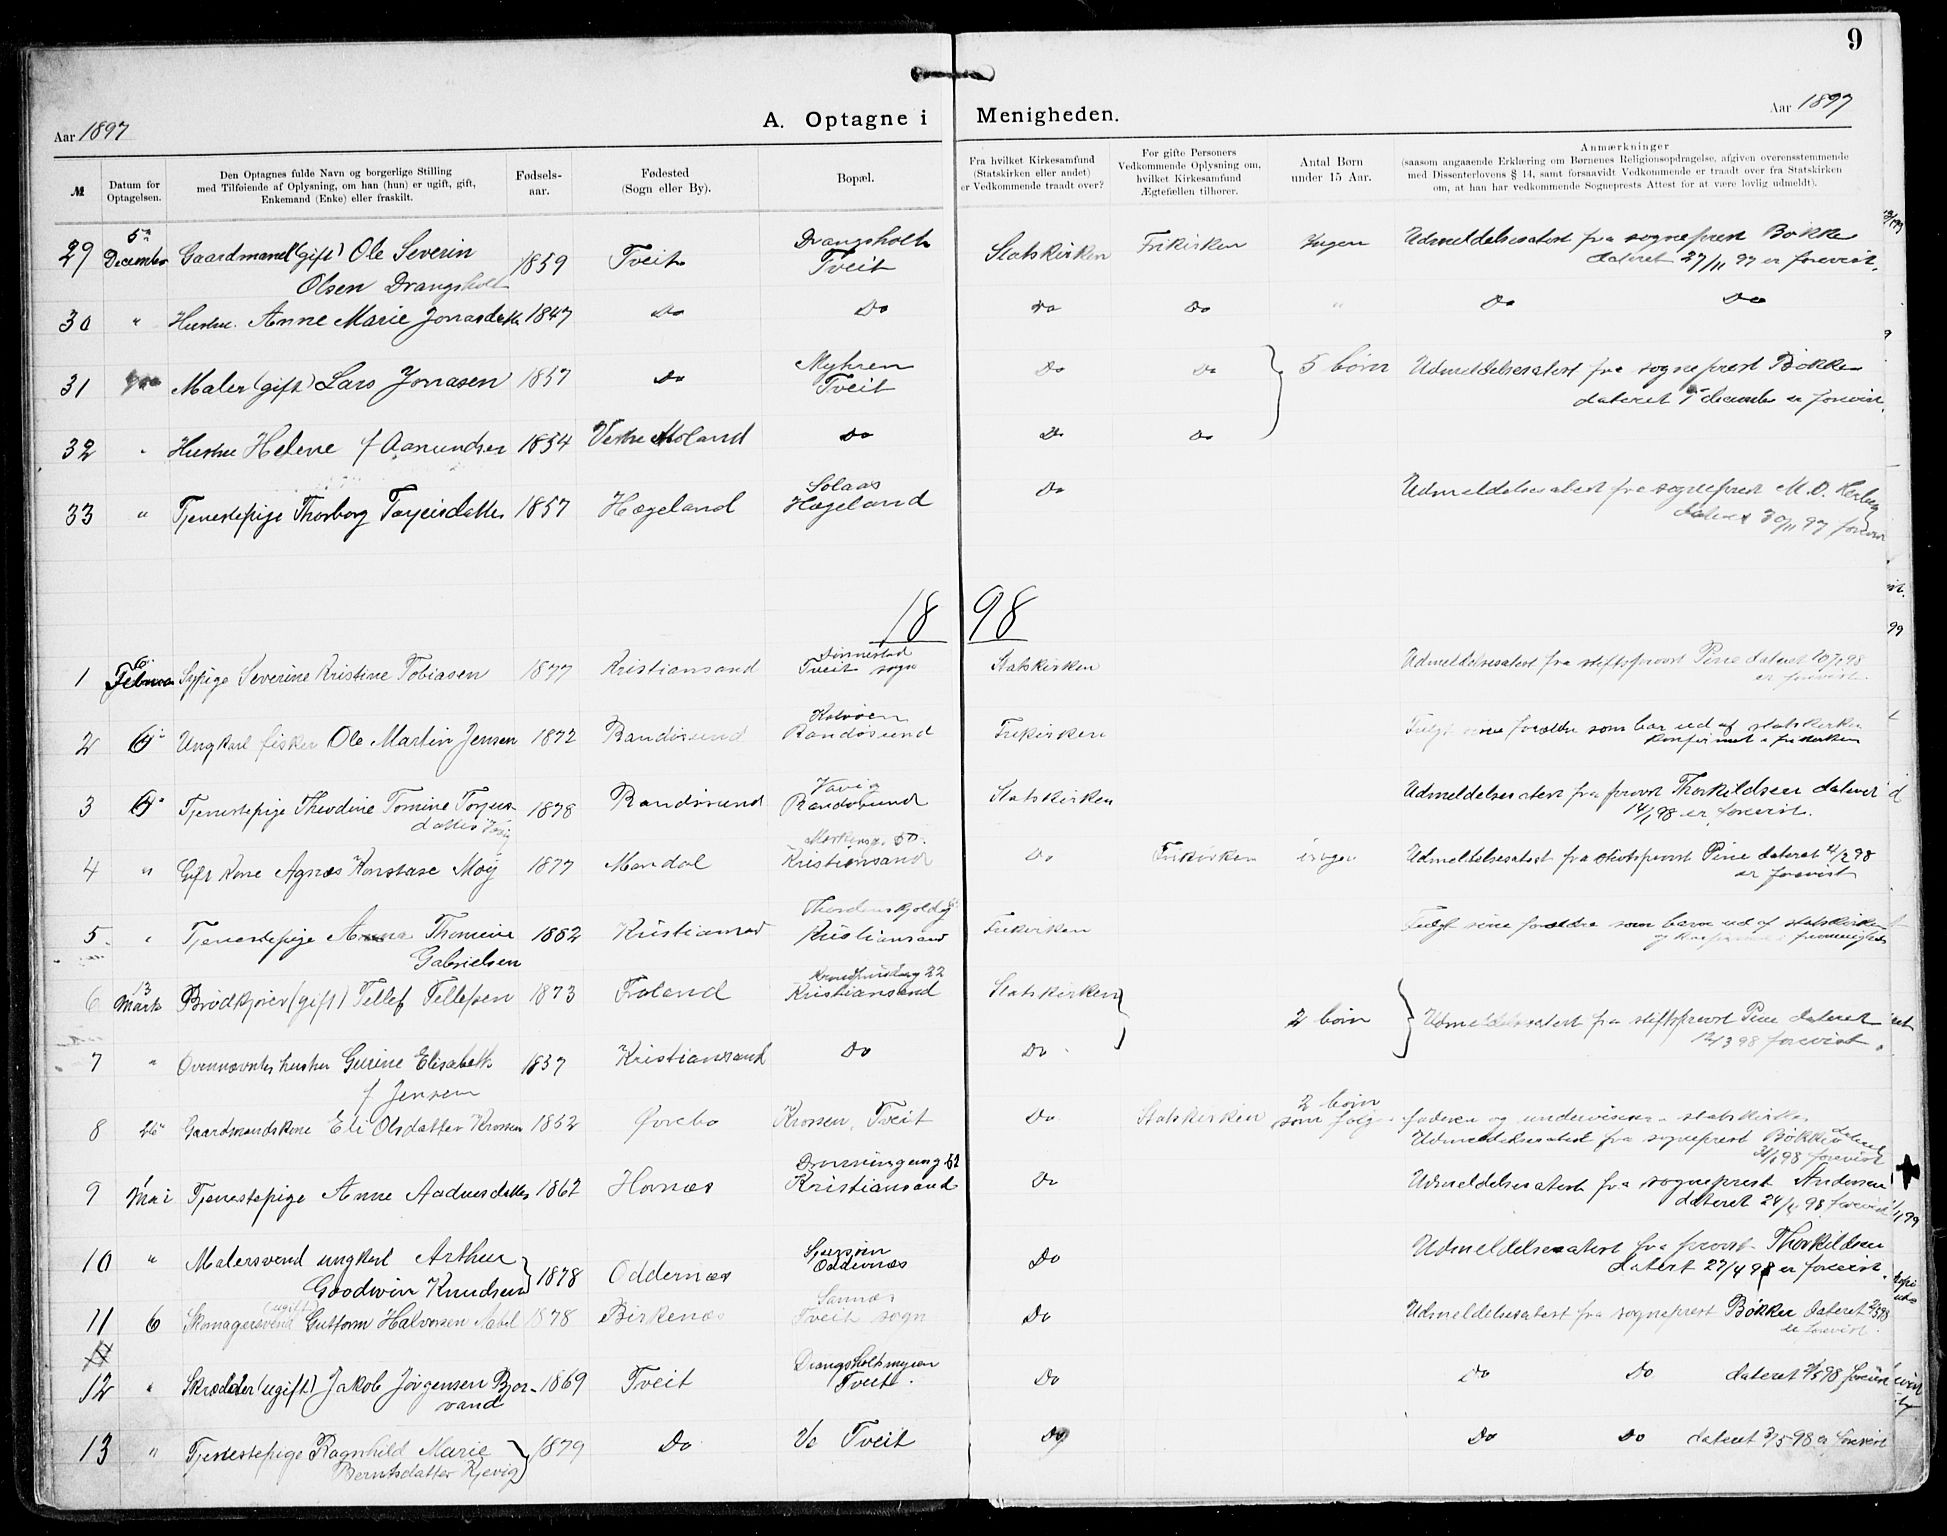 9
Aar 1897
A. Optagne i Menigheden.
Aar 1897
№
Datum for Optagelsen.
Den Optagnes fulde Navn og borgerlige Stilling
med Tilføiende af Oplysning, om han (hun) er ugift, gift,
Enkemand (Enke) eller fraskilt.
Fødsels-
aar.
Fødested
(Sogn eller By).
Bopæl.
Fra hvilket Kirkesamfund
(Statskirken eller andet)
er Vedkommende traadt over?
For gifte Personers
Vedkommende Oplysning om,
hvilket Kirkesamfund
Ægtefællen tilhører.
Antal Børn
under 15 Aar.
Anmærkninger
(saasom angaaende Erklæring om Børnenes Religionsopdragelse, afgiven overensstemmende
med Dissenterlovens § 14, samt forsaavidt Vedkommende er traadt over fra Statskirken
om, at han har vedkommende Sogneprests Attest for at være lovlig udmeldt).
29 5te December Gaardmand (gift) Ole Severin Olsen Drangsholt 1859 Tveit Drangsholt Tveit Statskirken Frikirken Ingen Udmeldelsesattest fra sogneprest Bøkke
dateret 27/11 97 er forevist.
30 " Hustru. Anne Marie Jonasdatter 1847 Do Do Do Do " Do Do
31 Maler (gift) Lars Jonasen 1857 Do Myhren Tveit Do Do 5 børn Udmeldelsesattest fra sogneprest Bøkke
dateret 1 december er forevist.
32 " Hustru Helene f Aanundsen 1854 Vestre Moland Do Do Do
33 " Tjenestepige Thorborg Torjeisdatter 1857 Hægeland Solaas Hægeland Do Udmeldelsesattest fra sogneprest M. O.
dateret 30/11 97 forevist
1898
1 6 Februar Sypige Severine Kristine Tobiasen 1877 Kristiansand Dønnestad Tveit sogn Statskirken Udmeldelsesattest fra stiftsprovst Pine dateret 98
er forevist.
2 Ungkarl fisker Ole Martin Jensen 1872 Randøsund Kalvøen Randøsund Frikirken Fulgt sine forældre som bar ud af statskirken
konfirmert i frikirken
3 Tjenestepige Theodine Tomine Torjusdatter 1878 Randøsund Randøsund Statskirken Udmeldelsesattest fra provst Thorkildsen dateret
14/1 98 er forevist.
4 " Gift kone Agnes Konstanse Moij 1877 Mandal Kristiansand Do Frikirken ingen Udmeldelsesattest fra stiftsprovst Pine dateret 4/2 98
er forevist
5 " Tjenestepige Anna Thomine Gabrielsen 1882 Kristiansand Kristiansand Frikirken Fulgt sine forældre som bare ud af statskirken
6 13 Marts Brødkjører (gift) Tellef Tellefsen 1873 Froland Kristiansand Statskirken 2 børn Udmeldelsesattest fra stiftsprovst Pine dateret
12/3 98 forevist.
7 " Ovennævntes hustru Gurine Elisabeth f Jensen 1857 Kristiansand Do Do
8 26 Gaardmandskone Eli Olsdatter Krossen 1852 Øvrebø Krossen, Tveit Do Statskirken 2 børn som følger faderen og undervises i statskirken
Udmeldelsesattest fra sogneprest Bøkke dateret
98 forevist
9 1 Mai Tjenestepige Anne Aadnesdatter 1862 Hornæs Dronningensg 52 Kristiansand Do Udmeldelsesattest fra sogneprest Andersen
dateret 24/4 98 forevist
10 " Malersvend ungkarl Arthur Goodwin Knudsen 1878 Oddernæs Oddernæs Do Udmeldelsesattest fra provst Thorkildsen
datert 27/4 98 er forevist.
11 6 Skomagersvend (ugift) Guttorm Halvorsen Aabel 1878 Birkenæs Sannæs Tveit sogn Do Udmeldelsesattest fra sogneprest Bøkke dateret 2/5 98
er forevist.
12 " Skrædder (ugift) Jakob Jørgensen Bjorvand 1869 Tveit Drangsholtmyren Tveit. Do Do Do dateret 98 forevist
13 " Tjenestepige Ragnhild Marie Berntsdatter Kjevig 1879 Do Ve Tveit Do Do Do dateret 3/5 98 er forevist